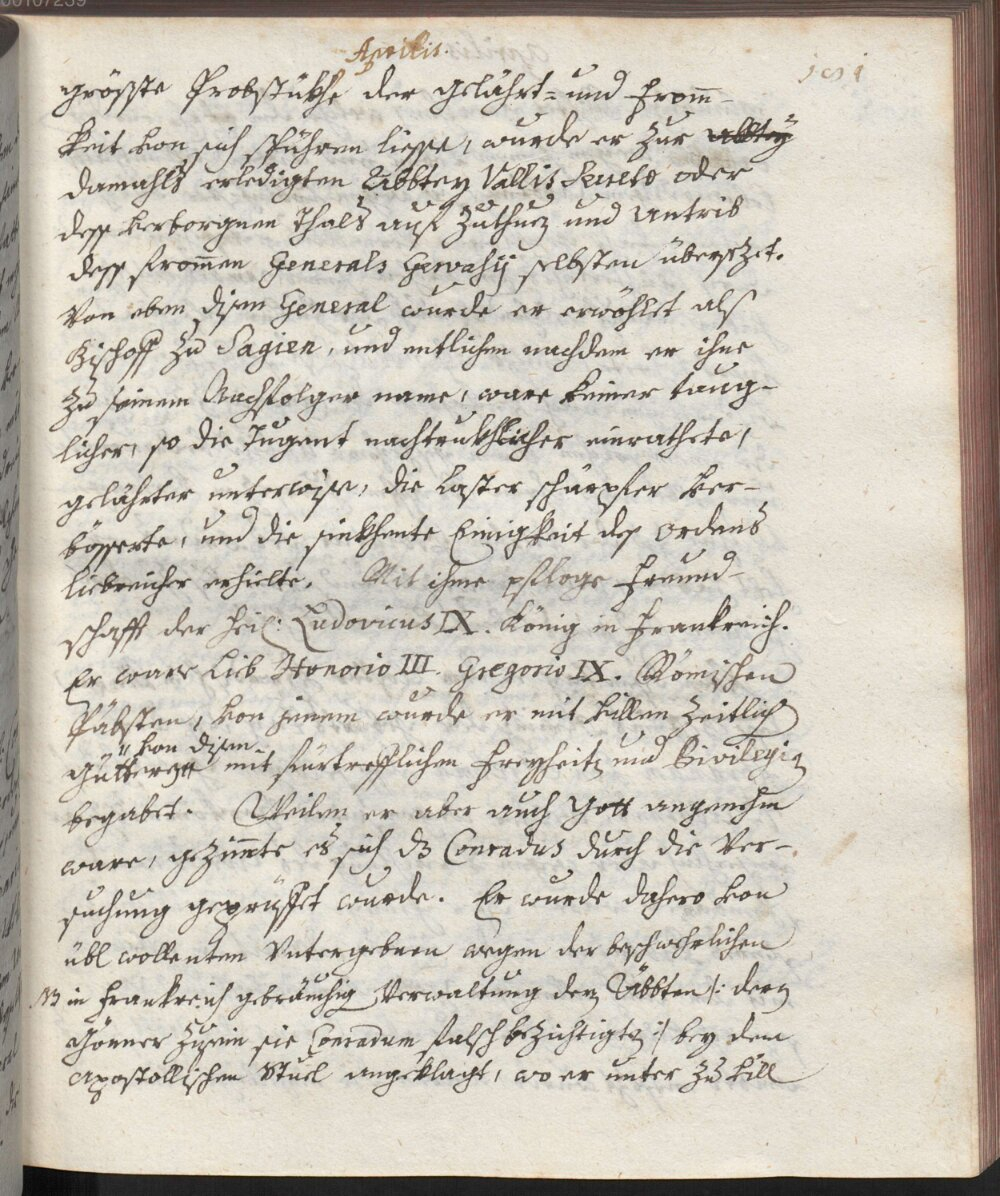 00107259
Aprilis.
grösste Probstükhe der gelährt- und Fromm-
keit von sich spühren liesse, wurde er zur Abbtey
damahls erledigten Abbtey Vallis Secretæ oder
dess verborgnen Thals auf Zuthuen und Antrib
dess frommen Generals Gervasij selbsten übersezet.
Von eben disen General wurde er erwöhlet als
Bischoff zu Sagien, und entlichen nachdem er ihne
zu seinem Nachfolger name, ware keiner taug-
licher, so die Tugent nachtrukhlicher einrathete,
gelährter unterwise, die Laster schärpfer ver-
bösserte, und die sinkhente Einigkeit des Ordens
liebreicher erhielte. Mit ihme pfloge Freund-
schafft der Heil: Ludovicus IX. König in Frankreich.
Er ware lieb Honorio III. Gregorio IX. Römischen
Päbsten, von jenem wurde er mit villen zeitlich
von disem
Güttern mit fürtrefflichen Freyheitn und Privilegien
begabet. Weilen er aber auch Gott angenehm
ware, gezimte es sich dz Conradus durch die Ver-
suchung geprüffet wurde. Er wurde dahero von
übl wollenten Untergebnen wegen der beschwehrlichen
NB in Frankreich gebräuchig Verwaltung dern Äbbten /: dern
Gönner zusein sie Conradum falsch bezichtigtn :/ bey dem
Apostollischen Stuel angeklagt, wo er unter zu vill